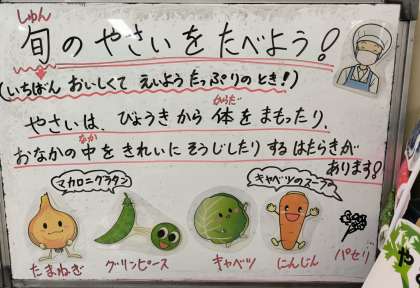 しゅん
旬のやさいをたべよう!
(いちばん おいしくて えいようたっぷりのとき!)
からだ
やさいは、びょうきから 体をまもったり、
なか
おなかの中をきれいにそうじしたりするはたらきが
あります!
マカロニグラタン
キャベツのスープ
たまねぎ
グリンピース
キャベツ
にんじん
パセリ